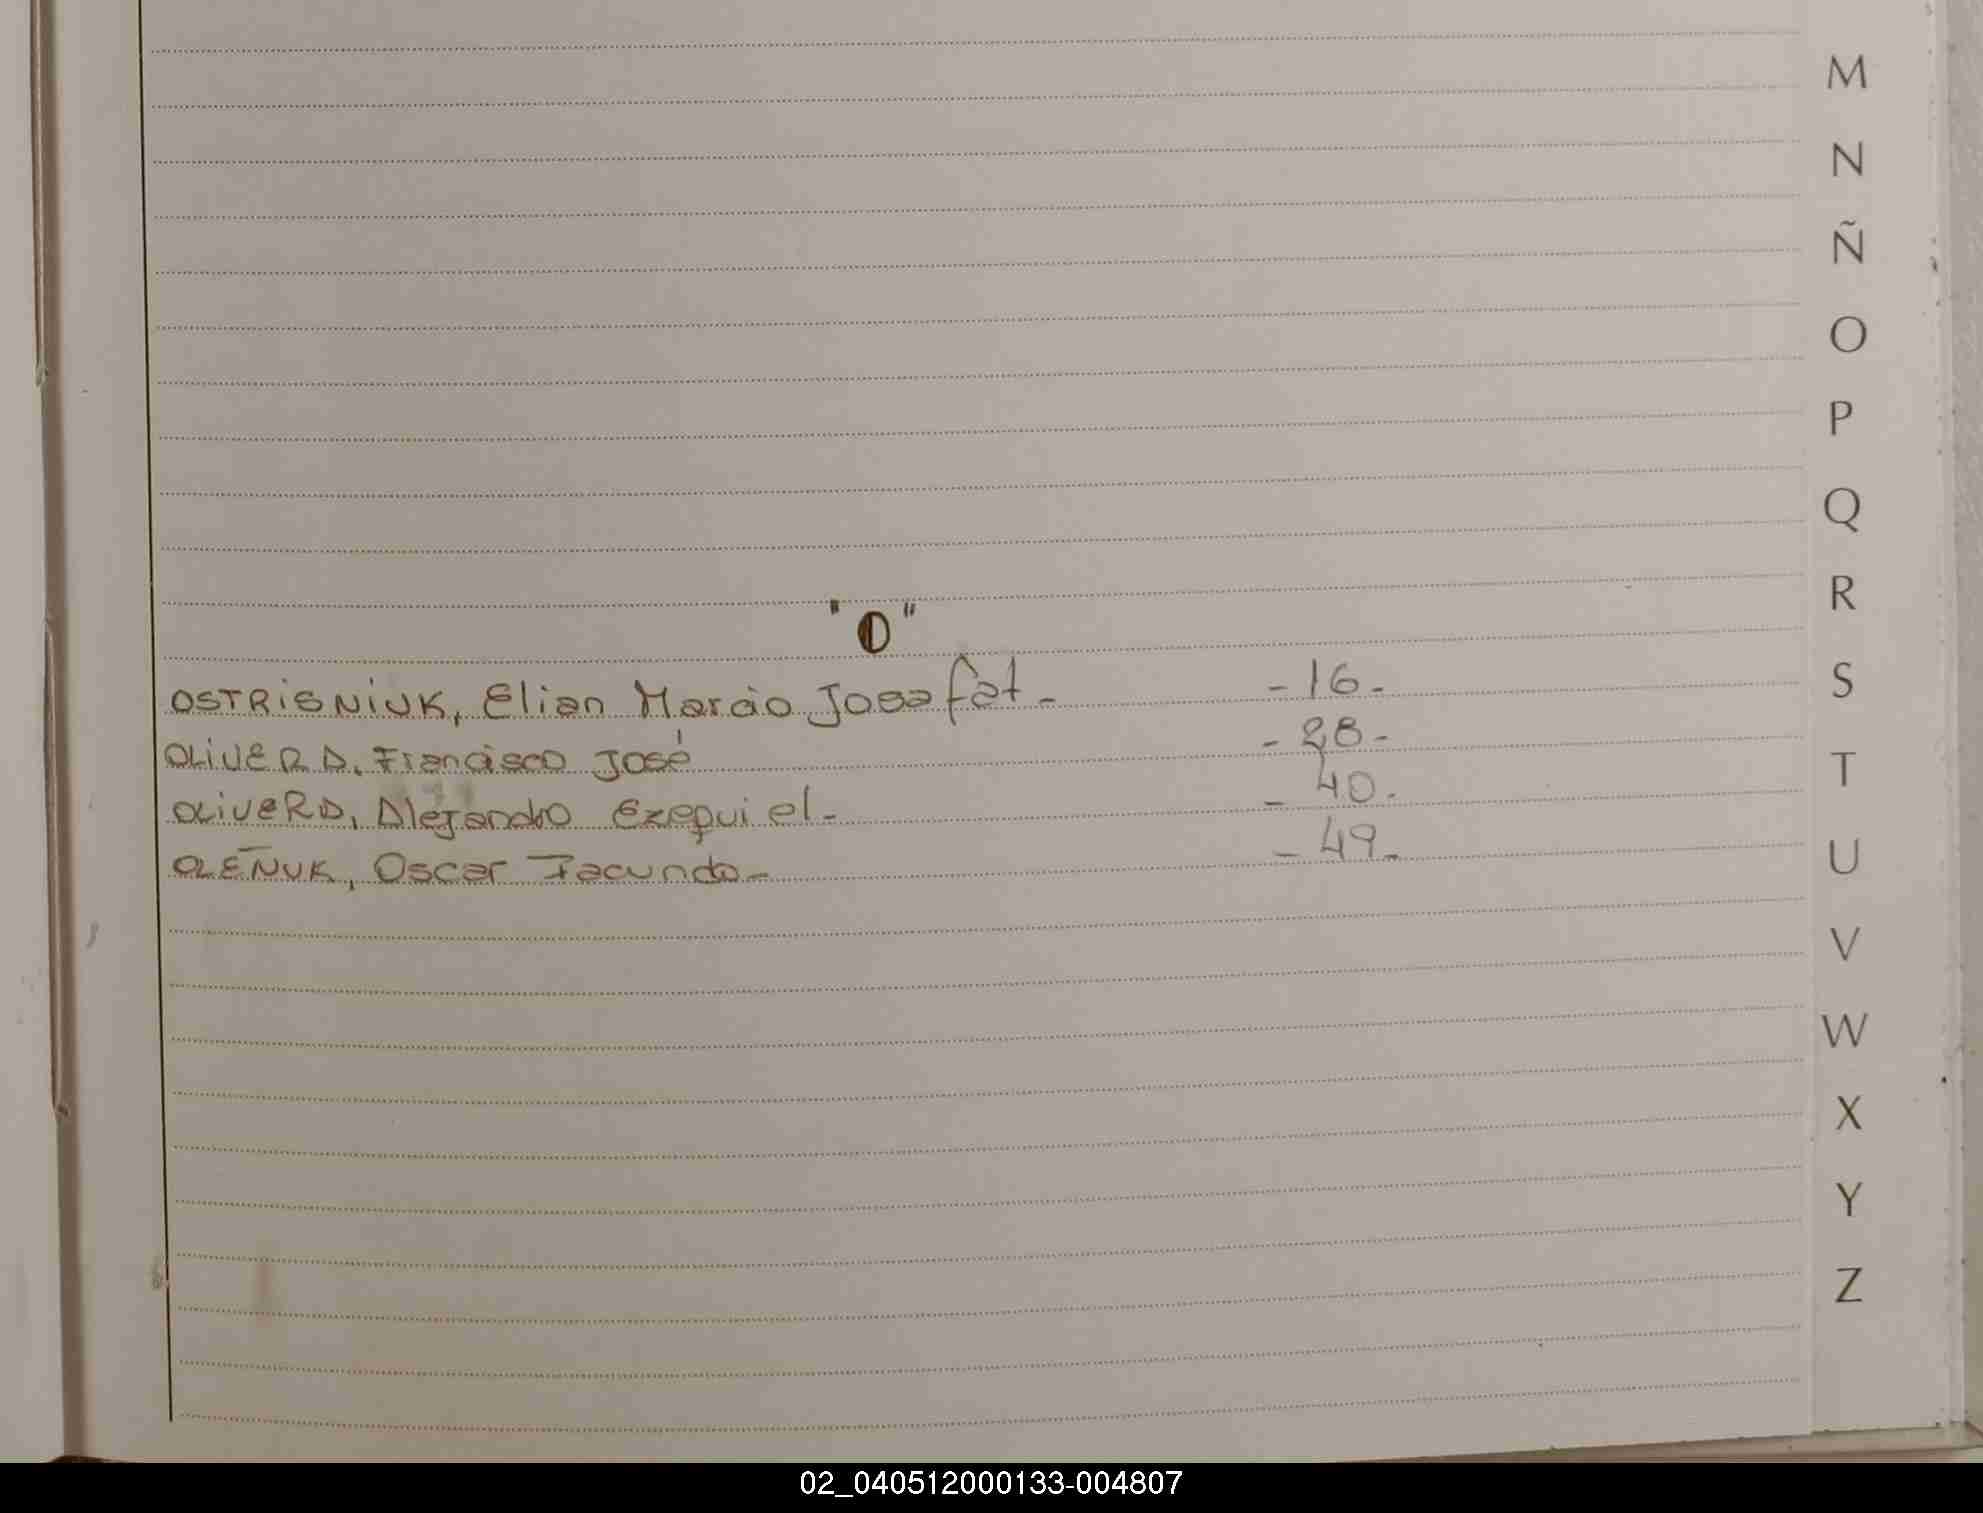 M
N
Ñ
O
P
Q
R
"O"
OSTRISNIUK, Elian Marcio Josafat - - 16 - S
OLIVERA, Francisco José - 28 -
OLIVERA, Alejandro Ezequiel - - 40 - T
OLEÑUK, Oscar Facundo - - 49 - U
V
W
X
Y
Z
02_040512000133-004807